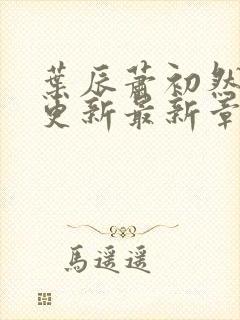 葉辰蕭初然
更新最新章
馬遥遥